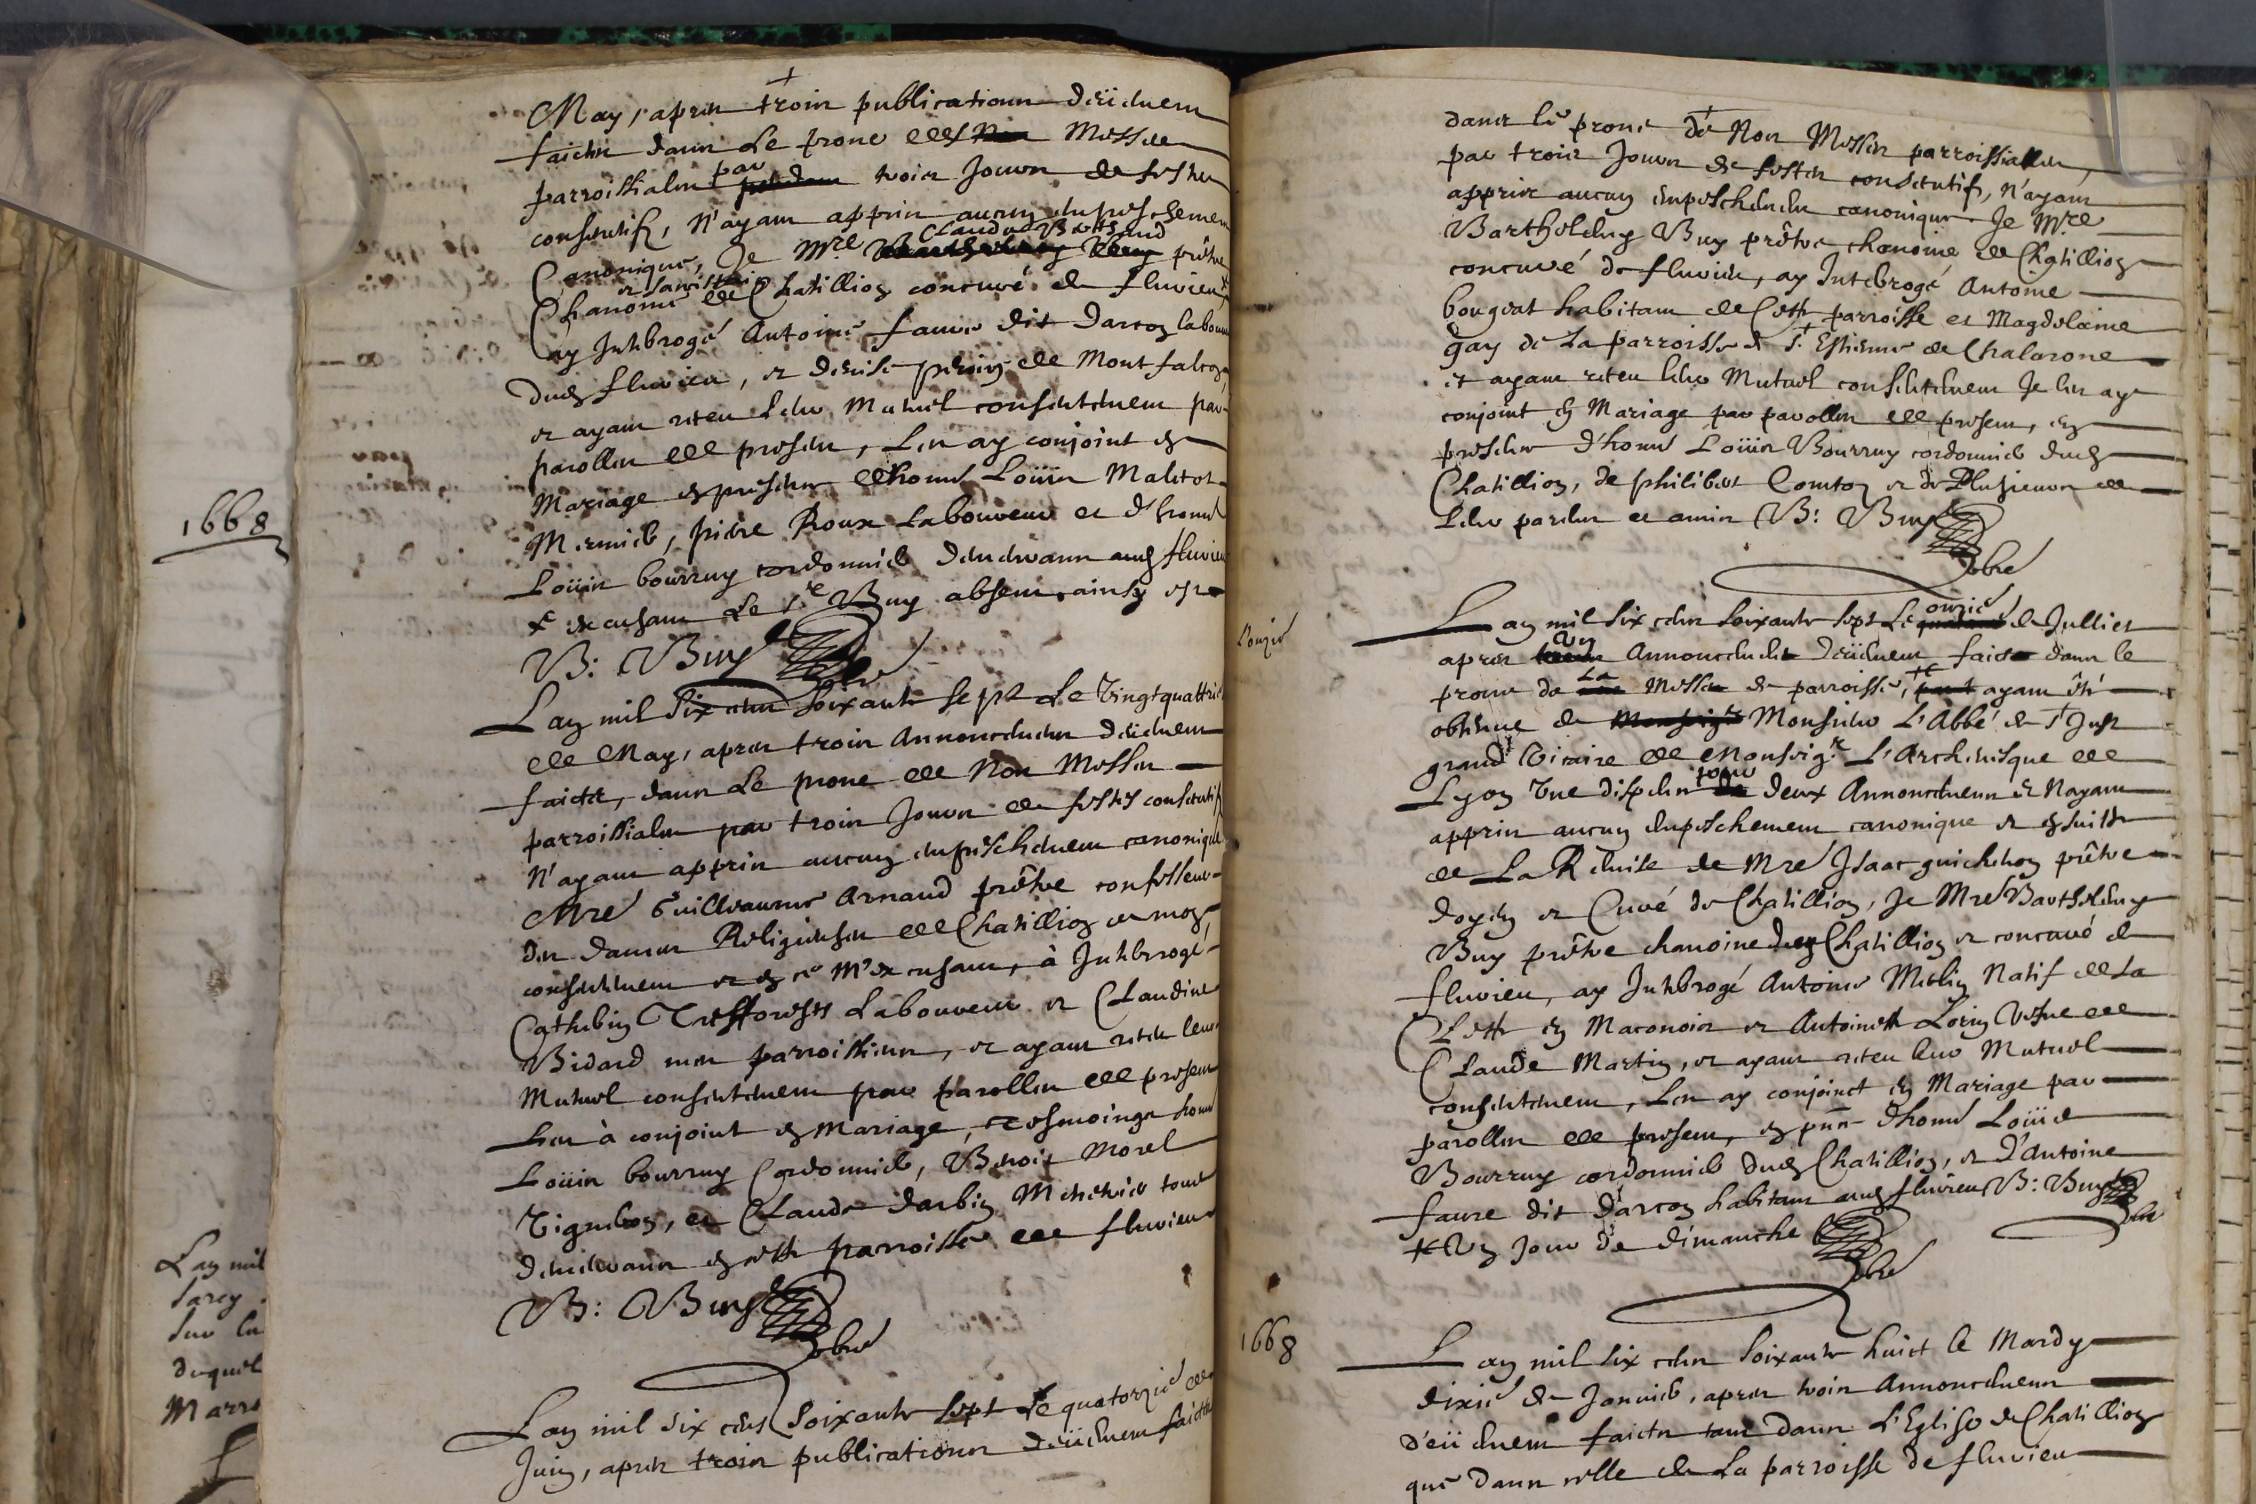 May, apres trois publications deüement
faictes dans Le prone de Messes
parroissiales par trois Jours de festes
consecutifz, N'ayant appris aucun empeschement
Canonique, Je Mre Claude Bertrand prêtre
Chanoine et sacristain de Chatillion concuré de fluvieu x
ay Interrogé Antoine faure dit darcon laboureur
dud fluvieu, et denise perrin de Montfalcon,
et ayant receu Leur Mutuel consentement par
parolles de present, Les ay conjoint en
Mariage en presence d'honnê Loüis
Mercier, pierre Roux Laboureur et d'honnê
Loüis bourruy cordonnier demeurants aud fluvieu
x excusant le sr Buy absent ainsy est
B: Buy pbre
1668
Lan mil six cens soixante sept Le vingtquattrie
de May, apres trois Annoncements deüement
faicts, dans Le prone de Nos Messes
parroissiales par trois Jours de festes consecutifz
N'ayant appris aucun empeschement canonique
Mre Guilleaume Arnaud prêtre confesseur
des dames Religieuses de Chatillion de mon
consentement et en ce M'excusant, à Interrogé
Catherin Laboureur et Claudine
Bidard mes parroissiens, et ayant receu leur
Mutuel consentement par parolles de present
Les à conjoint en Mariage, Tesmoings honnê
Loüis bourruy Cordonnier, Benoit Morel
Vigneron, et Claude darbin tous
demeurants en cette parroisse de fluvieu
B: Buy pbre
Lan mil six cens soixante sept Le quatorzie de
Juin, apres trois publications deüement faictes
Lan mil
sur la
duquel
dans le prone de Nos Messes parroissialles,
par trois Jours de festes consecutifz, N'ayant
appris aucun empeschement canonique Je Mre
Barthelemy Buy prêtre chanoine de Chatillion
concuré de fluvieu, ay Interrogé Antoine
bougeat habitant de Cette parroisse et Magdelaine
gay de La parroisse de St Estienne de Chalarone
et ayant receu leur Mutuel consentement Je les ay
conjoint en Mariage par parolles de present, en
presence d'honnê Loüis Bourruy cordonnier dud
Chatillion, de philibert Comton et de Plusieurs de
Leur parens et amis B: Buy
pbre
L'onzie
Lan mil six cens soixante sept Le onzie de Julliet
apres un Annoncement deüement faict dans le
prone de La Messe de parroisse, x ayant êté
obtenue de Monsieur L'Abbé de St Just
grand Vicaire de Monseigr L'Archevesque de
Lyon Une dispense pour deux Annoncements et Nayant
appris aucun empeschement canonique et ensuitte
de La Remise de Mre Isaac guichenon prêtre
doyen et Curé de Chatillion, Je Mre Barthelemy
Buy prêtre chanoine dud Chatillion et concuré de
fluvieu, ay Interrogé Antoine Merlin Natif de La
Clette en Maconois et Antoinette Lorin Vefve de
Claude Martin, et ayant receu leur Mutuel
consentement, Les ay conjoinct en Mariage par
parolles de present, en pnce d'honnê Loüis
Bourruy cordonnier dud Chatillion, et d'Antoine
faure dit darcon habitant aud fluvieu B: Buy pbre
x Un Jour de dimanche
pbre
1668
Lan mil six cens soixante huict le Mardy
dixie de Janvier, apres trois Annoncements
deüement faicts tant dans L'Eglise de Chatillion
que dans celle de La parroisse de fluvieu